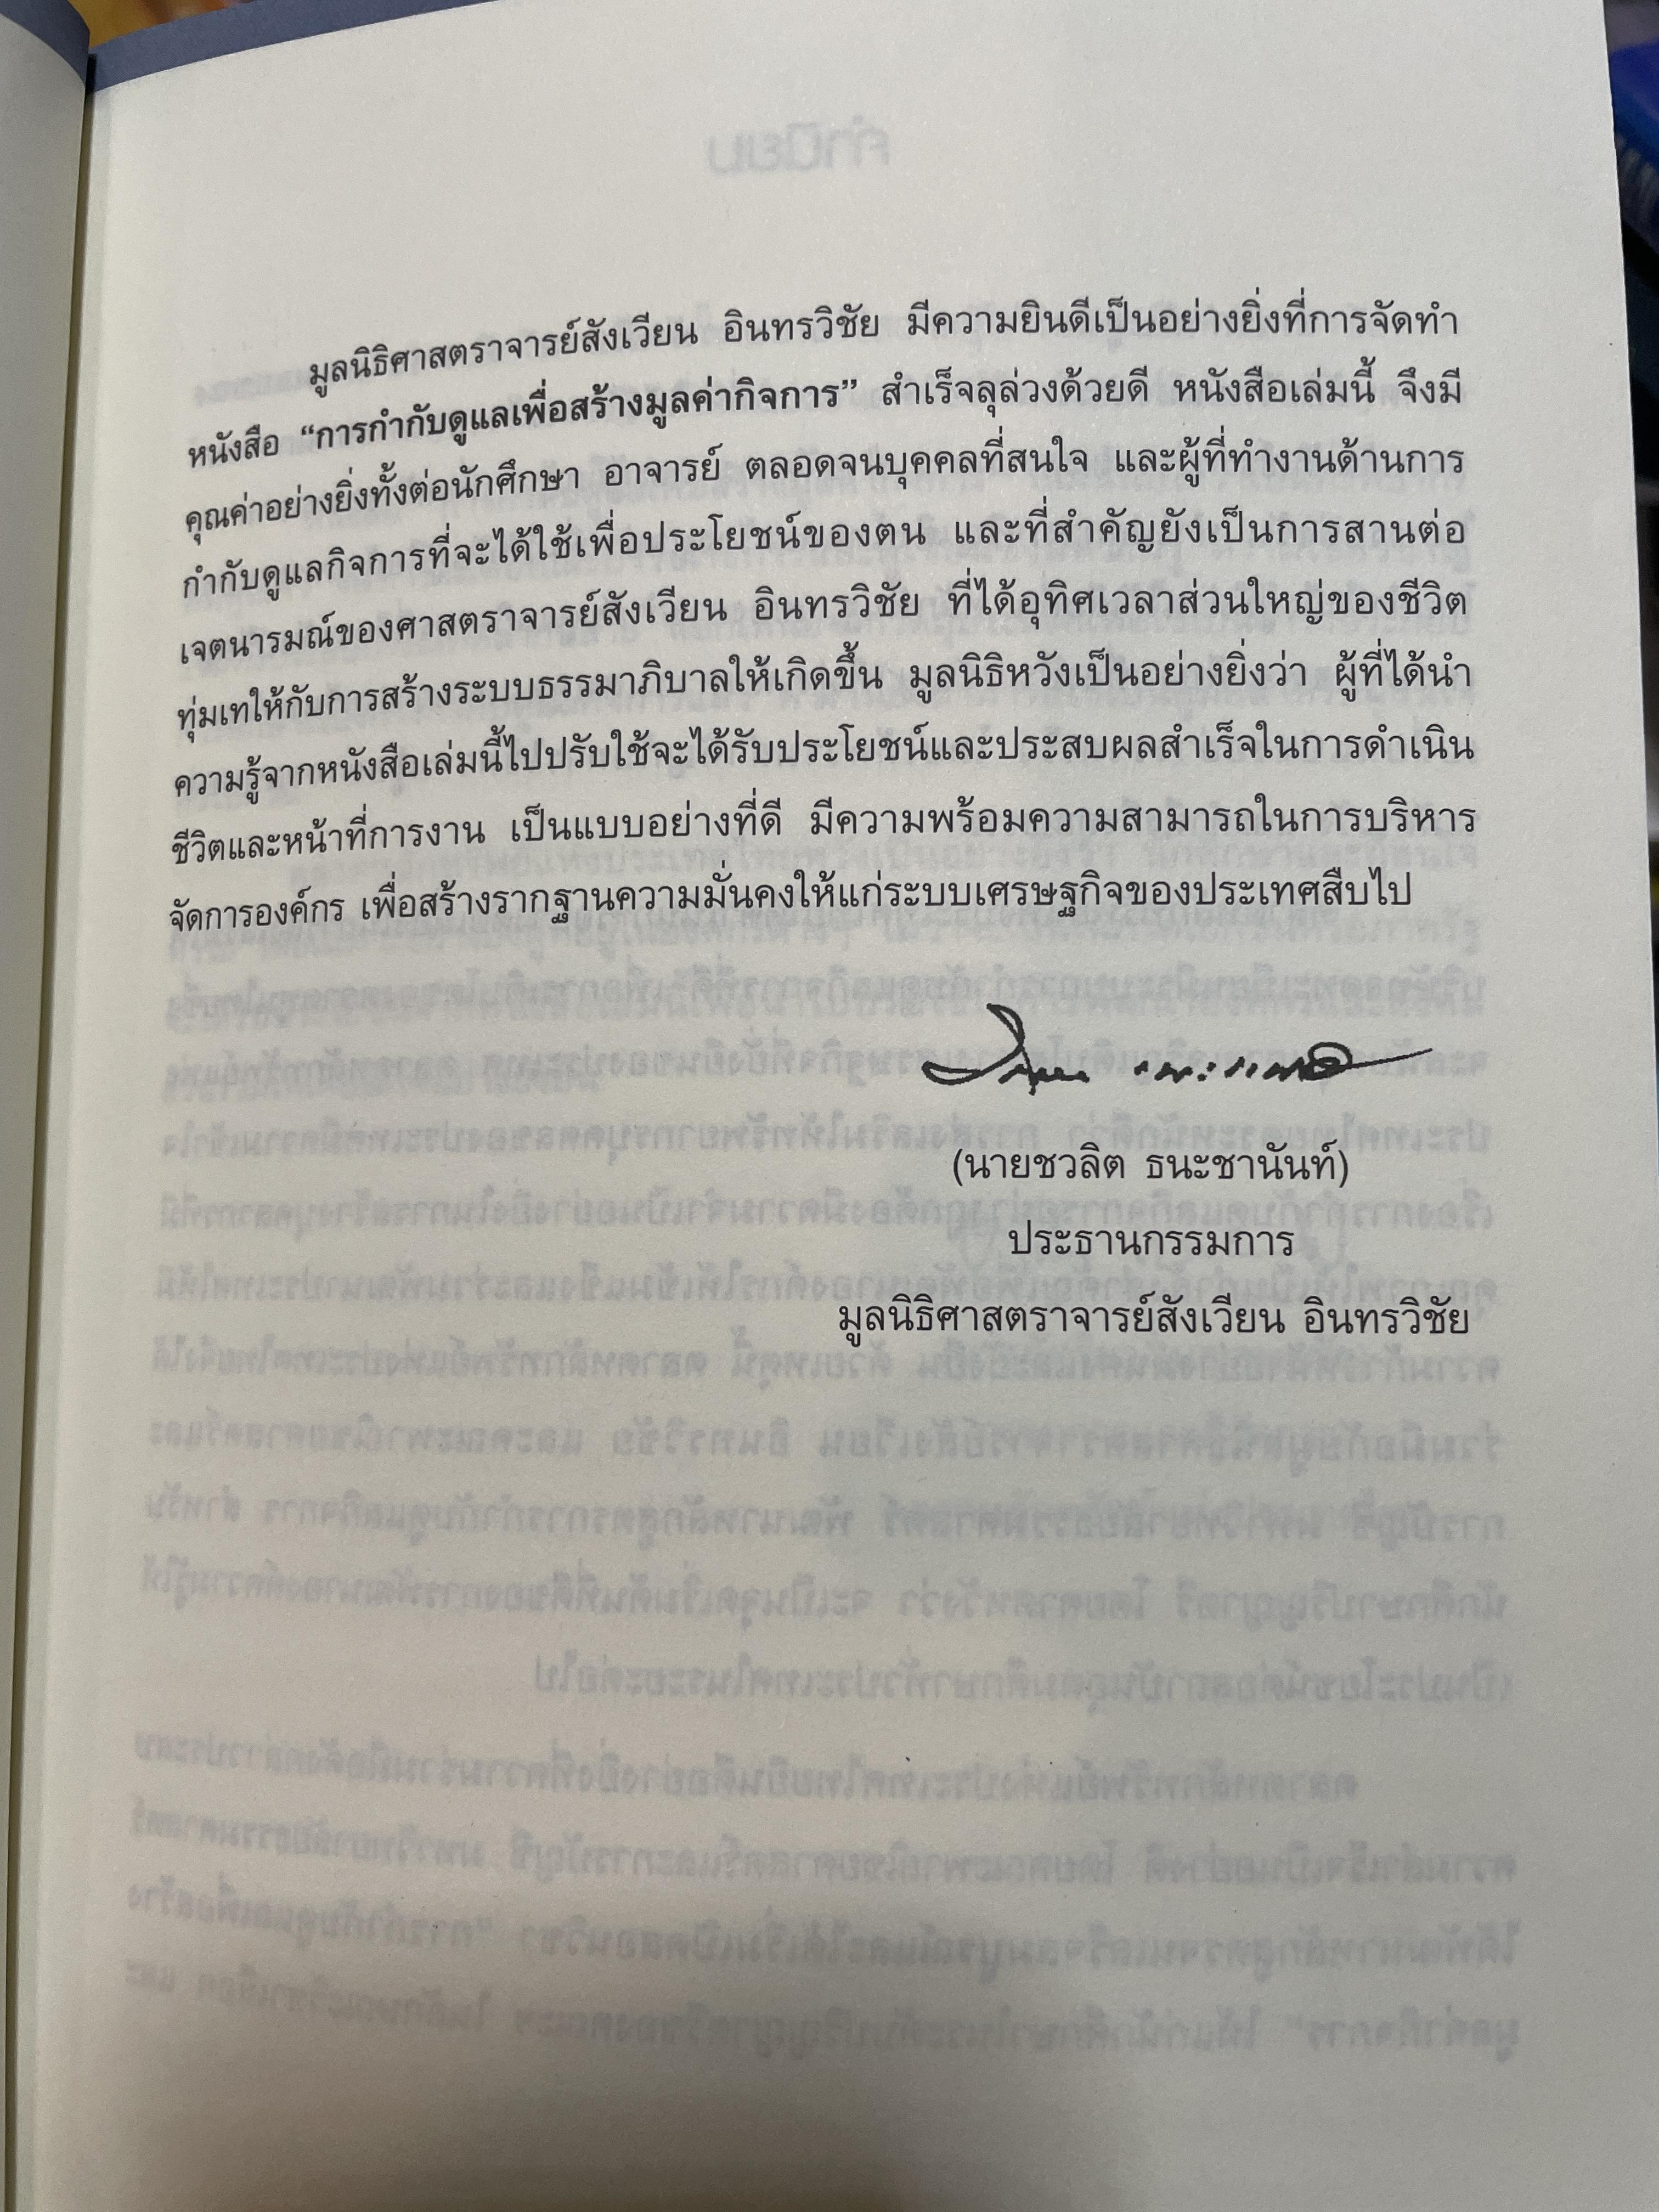 มูลนิธิศาสตราจารย์สังเวียน อินทรวิชัย มีความยินดีเป็นอย่างยิ่งที่การจัดทำ
หนังสือ “การกำกับดูแลเพื่อสร้างมูลค่ากิจการ” สำเร็จลุล่วงด้วยดี หนังสือเล่มนี้ จึงมี
คุณค่าอย่างยิ่งทั้งต่อนักศึกษา อาจารย์ ตลอดจนบุคคลที่สนใจ และผู้ที่ทำงานด้านการ
กำกับดูแลกิจการที่จะได้ใช้เพื่อประโยชน์ของตน และที่สำคัญยังเป็นการสานต่อ
เจตนารมณ์ของศาสตราจารย์สังเวียน อินทรวิชัย ที่ได้อุทิศเวลาส่วนใหญ่ของชีวิต
ทุ่มเทให้กับการสร้างระบบธรรมาภิบาลให้เกิดขึ้น มูลนิธิหวังเป็นอย่างยิ่งว่า ผู้ที่ได้นำ
ความรู้จากหนังสือเล่มนี้ไปปรับใช้จะได้รับประโยชน์และประสบผลสำเร็จในการดำเนิน
ชีวิตและหน้าที่การงาน เป็นแบบอย่างที่ดี มีความพร้อมความสามารถในการบริหาร
จัดการองค์กร เพื่อสร้างรากฐานความมั่นคงให้แก่ระบบเศรษฐกิจของประเทศสืบไป
(นายชวลิต ธนะชานันท์)
ประธานกรรมการ
มูลนิธิศาสตราจารย์สังเวียน อินทรวิชัย